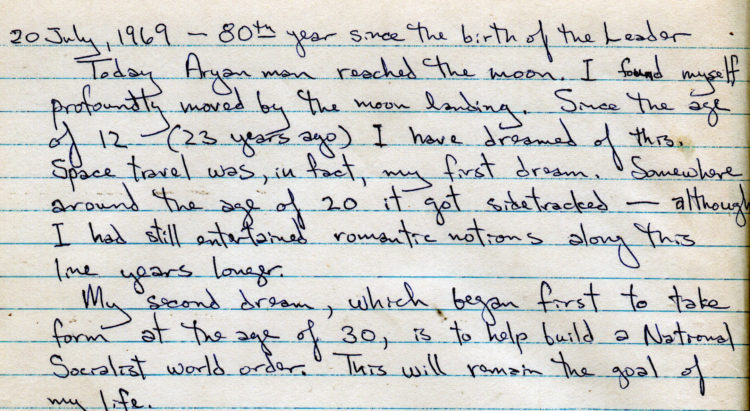 20 July, 1969 — 80th year since the birth of the Leader
Today Aryan man reached the moon. I found myself
profoundly moved by the moon landing. Since the age
of 12 — (23 years ago) I have dreamed of this.
Space travel was, in fact, my first dream. Somewhere
around the age of 20 it got sidetracked — although
I had still entertained romantic notions along this
line years longer.
My second dream, which began first to take
form at the age of 30, is to help build a National
Socialist world order. This will remain the goal of
my life.